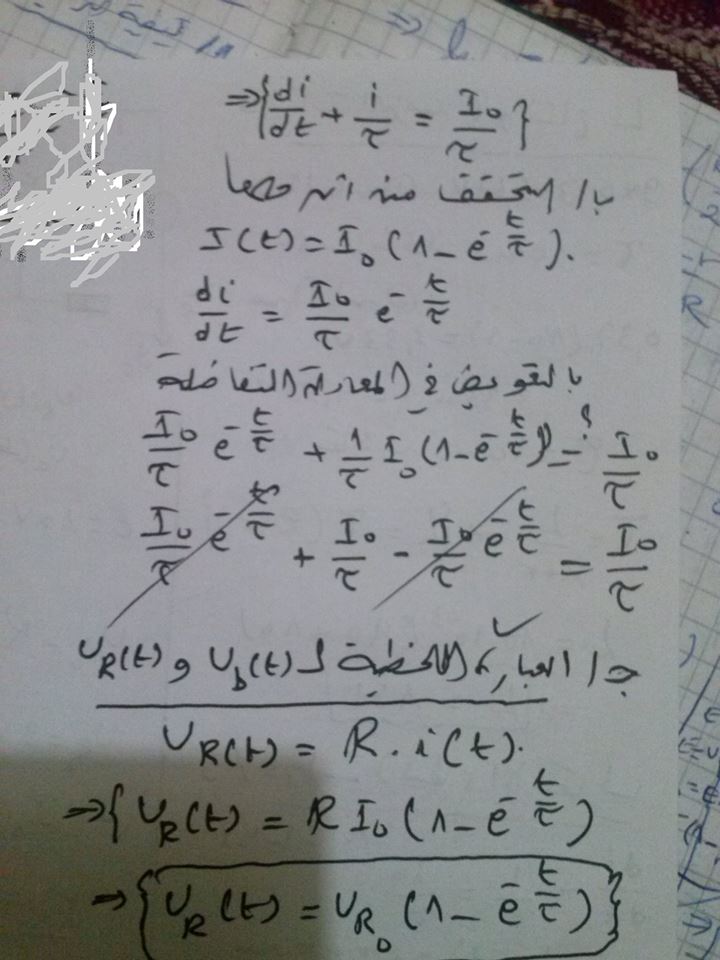 ⇒ { di/dt + i/τ = I₀/τ }
ب/ التحقق من أن حلها
I(t) = I₀ (1 - e^(-t/τ)).
di/dt = I₀/τ e^(-t/τ)
بالتعويض في المعادلة التفاضلية
I₀/τ e^(-t/τ) + 1/τ I₀ (1 - e^(-t/τ)) =? I₀/τ
I₀/τ e^(-t/τ) + I₀/τ - I₀/τ e^(-t/τ) = I₀/τ
✓
ج/ العبارة اللحظية لـ U_b(t) و U_R(t)
U_R(t) = R . i(t).
⇒ { U_R(t) = R I₀ (1 - e^(-t/τ))
⇒ { U_R(t) = U_R₀ (1 - e^(-t/τ)) }